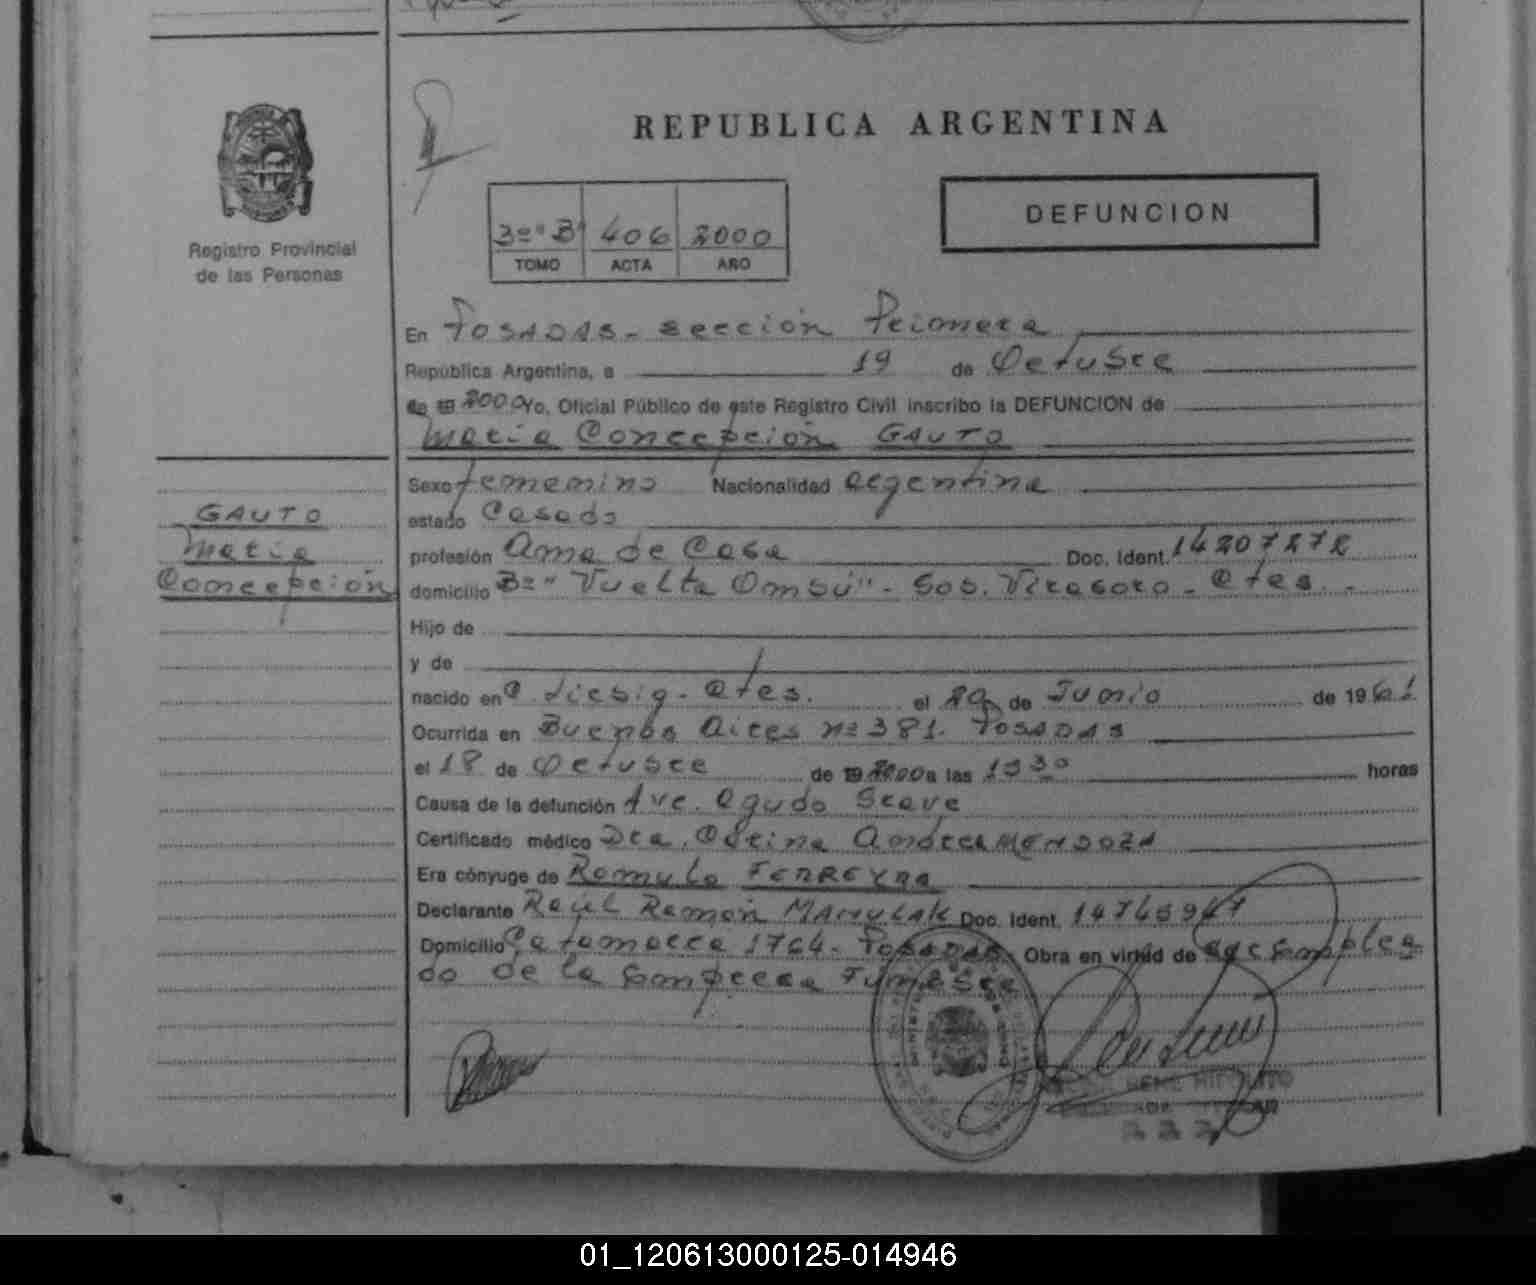 REPUBLICA ARGENTINA
DEFUNCION
Registro Provincial
de las Personas
3º "B" 406 2000
TOMO ACTA AÑO
En POSADAS - Sección Primera
República Argentina, a 19 de Octubre
de 2000 Yo, Oficial Público de este Registro Civil inscribo la DEFUNCION de
María Concepción GAUTO
GAUTO
María
Concepción
Sexo femenino Nacionalidad argentina
estado Casada
profesión Ama de Casa Doc. Ident. 14207272
domicilio Bº "Vuelta Ombú" - Gob. Virasoro - Ctes. -
Hijo de
y de
nacido en C. Liebig - Ctes. el 20 de Junio de 1961
Ocurrida en Buenos Aires nº 381 - POSADAS
el 18 de Octubre de 2000 a las 19 30 horas
Causa de la defunción A.v.c. Agudo Grave
Certificado médico Dra. Andrea MENDOZA
Era cónyuge de Romulo FERREYRA
Declarante Raúl Ramón MAMULAK Doc. Ident.
Domicilio Catamarca 1764 - POSADAS - Obra en virtud de ser emplea
do de la empresa Fúnebre
RENE HIPOLITO
01_120613000125-014946